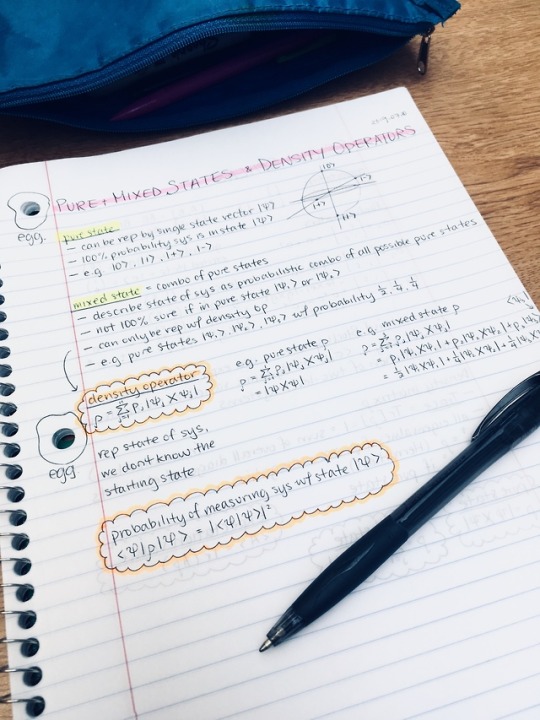 PURE & MIXED STATES & DENSITY OPERATORS
egg.
pure state
- can be rep by single state vector |ψ>
- 100% probability sys is in state |ψ>
- e.g. |0>, |1>, |+>, |->
|0>
|->
|+>
|1>
mixed state = combo of pure states
- describe state of sys as probabilistic combo of all possible pure states.
- not 100% sure if in pure state |ψ₁> or |ψ₂>
- can only be rep w/ density op
- e.g. pure states |ψ₁>, |ψ₂>, |ψ₃> w/ probability ½, ¼, ¼
density operator
ρ = Σ pᵢ|ψᵢ><ψᵢ|
e.g. pure state ρ
ρ = Σ pᵢ|ψᵢ><ψᵢ|
= |ψ><ψ|
e.g. mixed state ρ
ρ = Σ pᵢ|ψᵢ><ψᵢ|
= p₁|ψ₁><ψ₁| + p₂
= ½|ψ₁><ψ₁| + ¼|ψ₂><ψ₂| + ¼|ψ₃
egg
rep state of sys,
we don't know the
starting state
probability of measuring sys w/ state |ψ>
<ψ|ρ|ψ> = |<ψ|ψ>|²